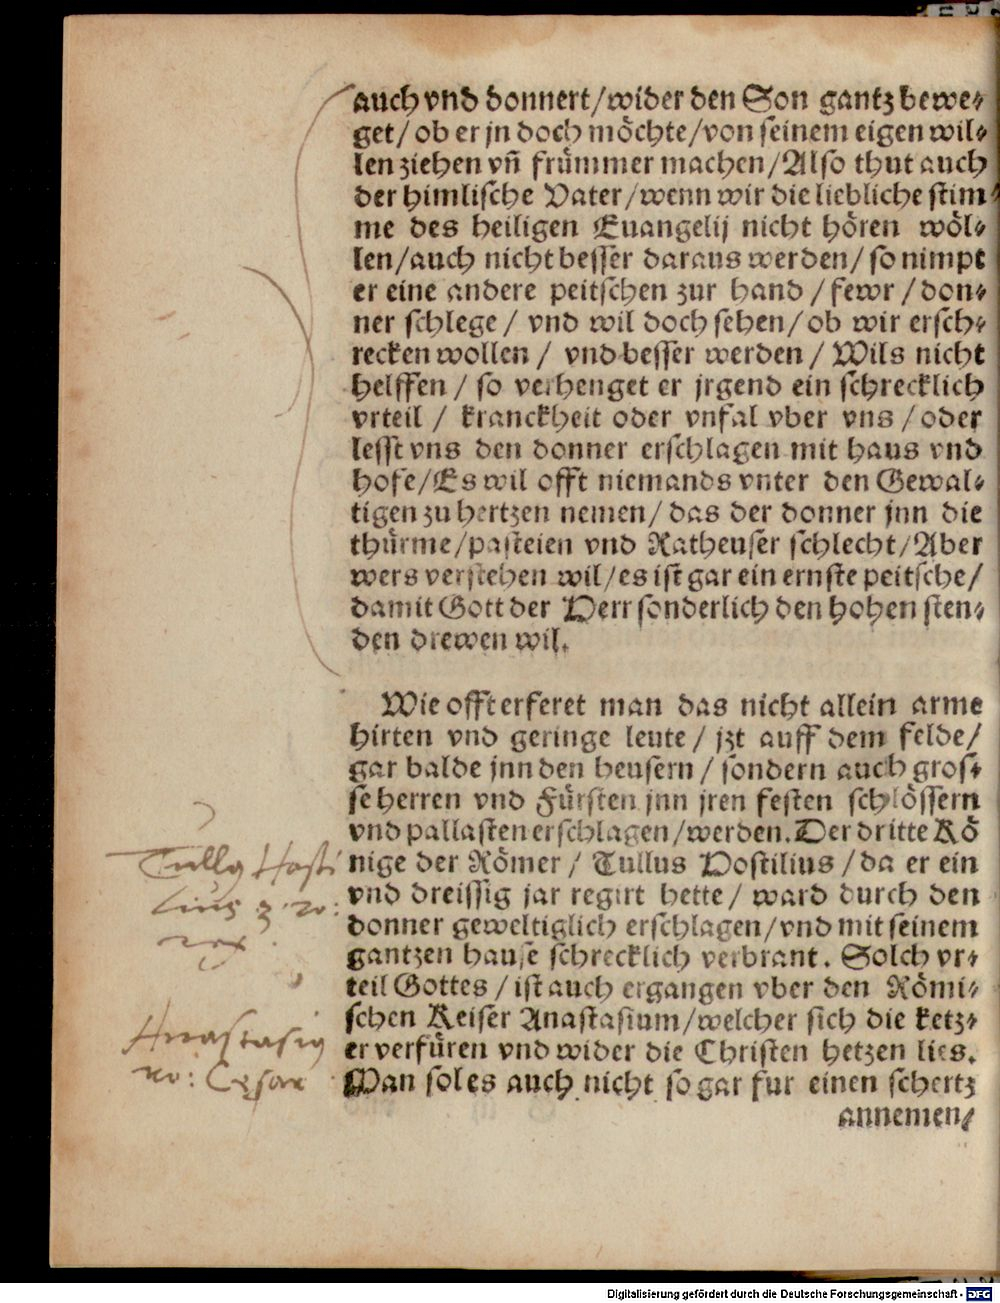 auch vnd donnert/wider den Son gantz bewe⸗
get/ ob er jn doch möchte/von seinem eigen wil⸗
len ziehen vñ frümmer machen/Also thut auch
der himlische Vater/wenn wir die liebliche stim⸗
me des heiligen Euangelij nicht hören wöl⸗
len/auch nicht besser daraus werden/ so nimpt
er eine andere peitschen zur hand / fewr / don⸗
ner schlege / vnd wil doch sehen/ ob wir ersch⸗
recken wollen / vnd besser werden / Wils nicht
helffen / so verhenget er jrgend ein schrecklich
vrteil / kranckheit oder vnfal vber vns / oder
lesst vns den donner erschlagen mit haus vnd
hofe/Es wil offt niemands vnter den Gewal⸗
tigen zu hertzen nemen/ das der donner jnn die
thürme/pasteien vnd Ratheuser schlecht/Aber
wers verstehen wil/es ist gar ein ernste peitsche/
damit Gott der Herr sonderlich den hohen sten⸗
den drewen wil.
Wie offt erferet man das nicht allein arme
hirten vnd geringe leute / jzt auff dem felde/
gar balde jnn den heusern / sondern auch gros⸗
se herren vnd Fürsten jnn jren festen schlössern
vnd pallasten erschlagen/werden. Der dritte Kö
nige der Römer / Tullus Hostilius / da er ein
vnd dreissig jar regirt hette / ward durch den
donner geweltiglich erschlagen/vnd mit seinem
gantzen hause schrecklich verbrant. Solch vr⸗
teil Gottes / ist auch ergangen vber den Römi⸗
schen Keiser Anastasium/welcher sich die ketz⸗
er verfüren vnd wider die Christen hetzen lies.
Man sol es auch nicht so gar fur einen schertz
annemen/
Tullꝰ Hosti
liuꝰ 3. ro:
rex.
Anastasiꝰ
ro: Cęsar
Digitalisierung gefördert durch die Deutsche Forschungsgemeinschaft - DFG